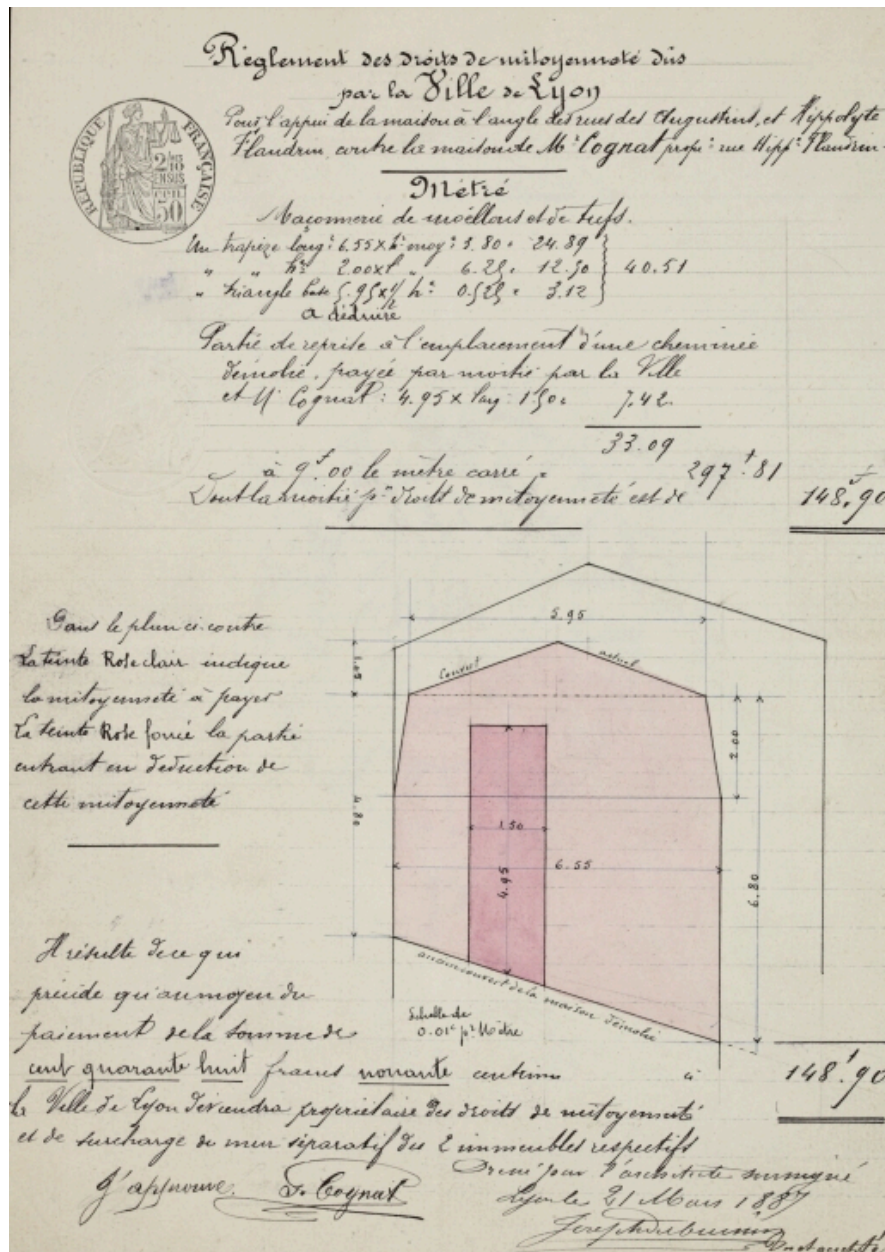 Règlement des droits de mitoyenneté dûs
par la Ville de Lyon
Pour l'appui de la maison à l'angle des rues des Augustins, et Hippolyte
Flandrin contre la maison de Mr Cognat propre rue Hippte Flandrin
REPUBLIQUE FRANÇAISE
2/10
EN SUS
50
CEN
Métré
Maçonnerie de moëllons et de tufs.
Un trapèze longr 6.55 x hr moy: 3.80 = 24.89
" " hr 2.00 x l " 6.25 = 12.50 40.51
" triangle base 5.95 x 1/2 hr 0.525 = 3.12
à déduire
Partie de reprise à l'emplacement d'une cheminée
démolie, payée par moitié par la Ville
et Mr Cognat: 4.95 x larg: 1.50 = 7.42
33.09
à 9f.00 le mètre carré = 297f.81
Dont la moitié pr droits de mitoyenneté est de 148f.90
Dans le plan ci-contre
La teinte Rose clair indique
la mitoyenneté à payer
La teinte Rose foncé la partie
entrant en déduction de
cette mitoyenneté
5.95
1.05
Couvert actuel
2.00
4.80
1.50
4.95
6.55
6.80
ancien couvert de la maison démolie
Echelle de
0.01c pr Mètre
Il résulte de ce qui
précède qu'au moyen du
paiement de la somme de
cent quarante huit francs nonante centimes ci 148f.90
la Ville de Lyon deviendra propriétaire des droits de mitoyenneté
et de surcharge du mur séparatif des 2 immeubles respectifs
Dressé par l'architecte soussigné
J'approuve. Cognat
Lyon le 21 Mars 1887
Joseph